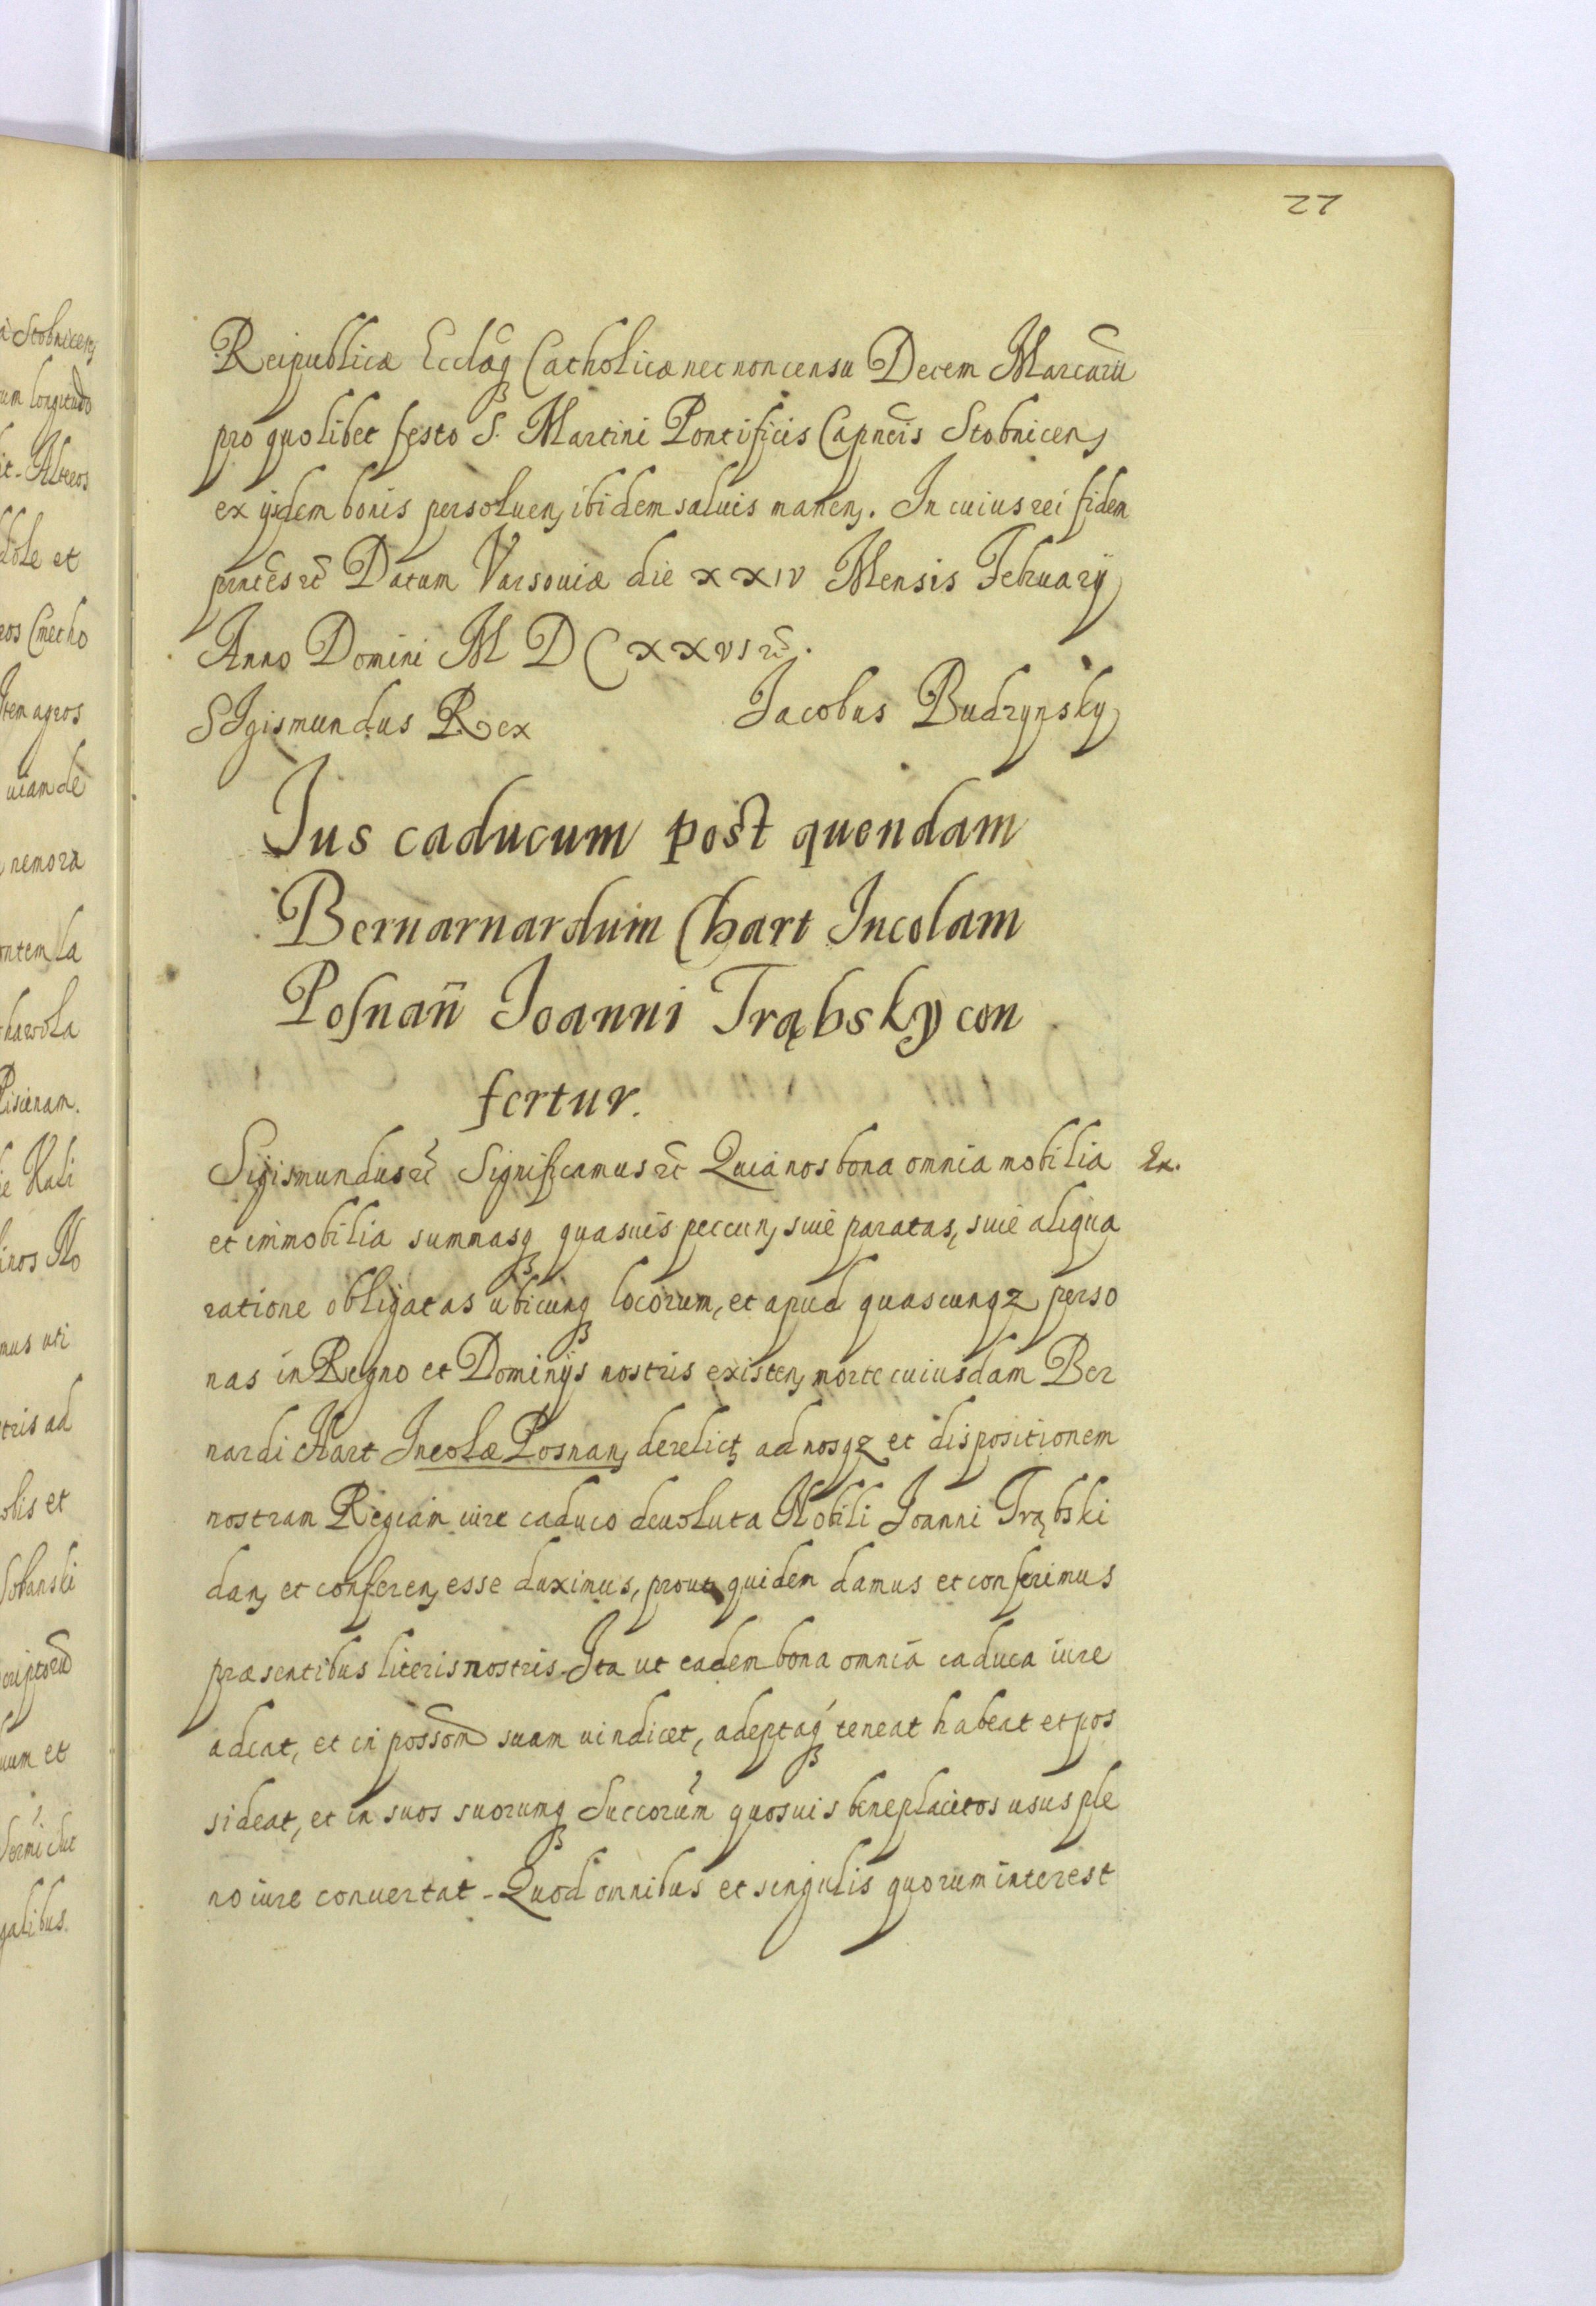 22
Reipublicæ Ecclāq Catholicæ nec non censu Decem Marcarū
pro quolibet festo S. Martini Pontificis Capnēis Stobnicen,
ex ijsdem bonis persoluen, ibidem saluis manen. In cuius rei fidem
prntēs rc̄ Datum Varsouiæ die XXIV Mensis February
Anno Domini M D C XXVI rc̄.
SIgismundus Rex Jacobus Budzynsky
Ius caducum post quendam
Bernarnardum Chart Incolam
Posnan̄ Joanni Trąbsky con
fertur.
Sigismundus rc̄ Significamus rc̄ Quia nos bona omnia mobilia Ex.
et immobilia summasq quasuis peccun, siue paratas, siue aliqua
ratione obligatas ubicunq locorum, et apud quascunqz perso
nas in Regno et Dominijs nostris existen, morte cuiusdam Ber
nardi Chart Incolæ Posnan, derelict, ad nosqz et dispositionem
nostram Regiam iure caduco deuoluta Nobili Joanni Trąbski
dan, et conferen, esse duximus, prout quidem damus et conferimus
præsentibus literis nostris. Ita ut eadem bona omnia caduca iure
adeat, et in possom̄ suam uindicet, adeptaq teneat habeat et pos
sideat, et in suos suorumq Succorum quosuis beneplacitos usus ple
no iure conuertat. Quod omnibus et singulis quorum interest
à Stobnicen,
rum longitudo
it. Alteros
dole et
ros Cmetho
Item agros
uiam de
nemora
ontem la
hawola
Piscinam.
Kali
inos No
mus uti
tris ad
obis et
Sobanski
criptorū
uum et
Sermi Suc
galibus.